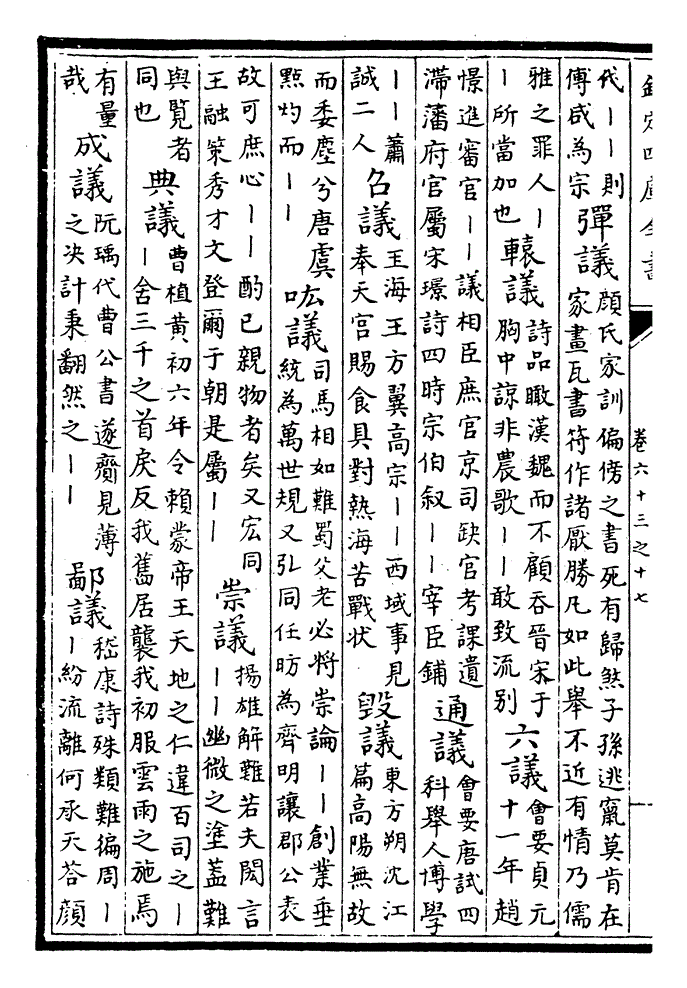 欽定四庫全書 卷六十三之十七
代丨丨則
傅咸為宗
彈議
顔氏家訓偏傍之書死有歸煞子孫逃竄莫肯在
家畫瓦書符作諸厭勝凡如此舉不近有情乃儒
雅之罪人丨
丨所當加也
轅議
詩品瞰漢魏而不顧吞晉宋于
胸中諒非農歌丨丨敢致流别
六議
會要貞元
十一年趙
憬進審官丨丨議相臣庶官京司缺官考課遺
滯藩府官屬宋璟詩四時宗伯叙丨丨宰臣鋪
通議
會要唐試四
科舉人博學
丨丨蕭
誠二人
召議
玉海王方翼高宗丨丨西域事見
奉天宮賜食具對熱海苦戰狀
毁議
東方朔沈江
篇高陽無故
而委塵兮唐虞
點灼而丨丨
吰議
司馬相如難蜀父老必將崇論丨丨創業垂
統為萬世規又弘同任昉為齊明讓郡公表
故可庶心丨丨酌已親物者矣又宏同
王融策秀才文登爾于朝是屬丨丨
崇議
揚雄解難若夫閎言
丨丨幽微之塗蓋難
與覽者
同也
典議
曹植黄初六年令賴蒙帝王天地之仁違百司之丨
丨舍三千之首戾反我舊居襲我初服雲雨之施焉
有量
哉
成議
阮瑀代曹公書遂齎見薄
之決計秉翻然之丨丨
鄙議
嵇康詩殊類難徧周丨
丨紛流離何承天荅顔